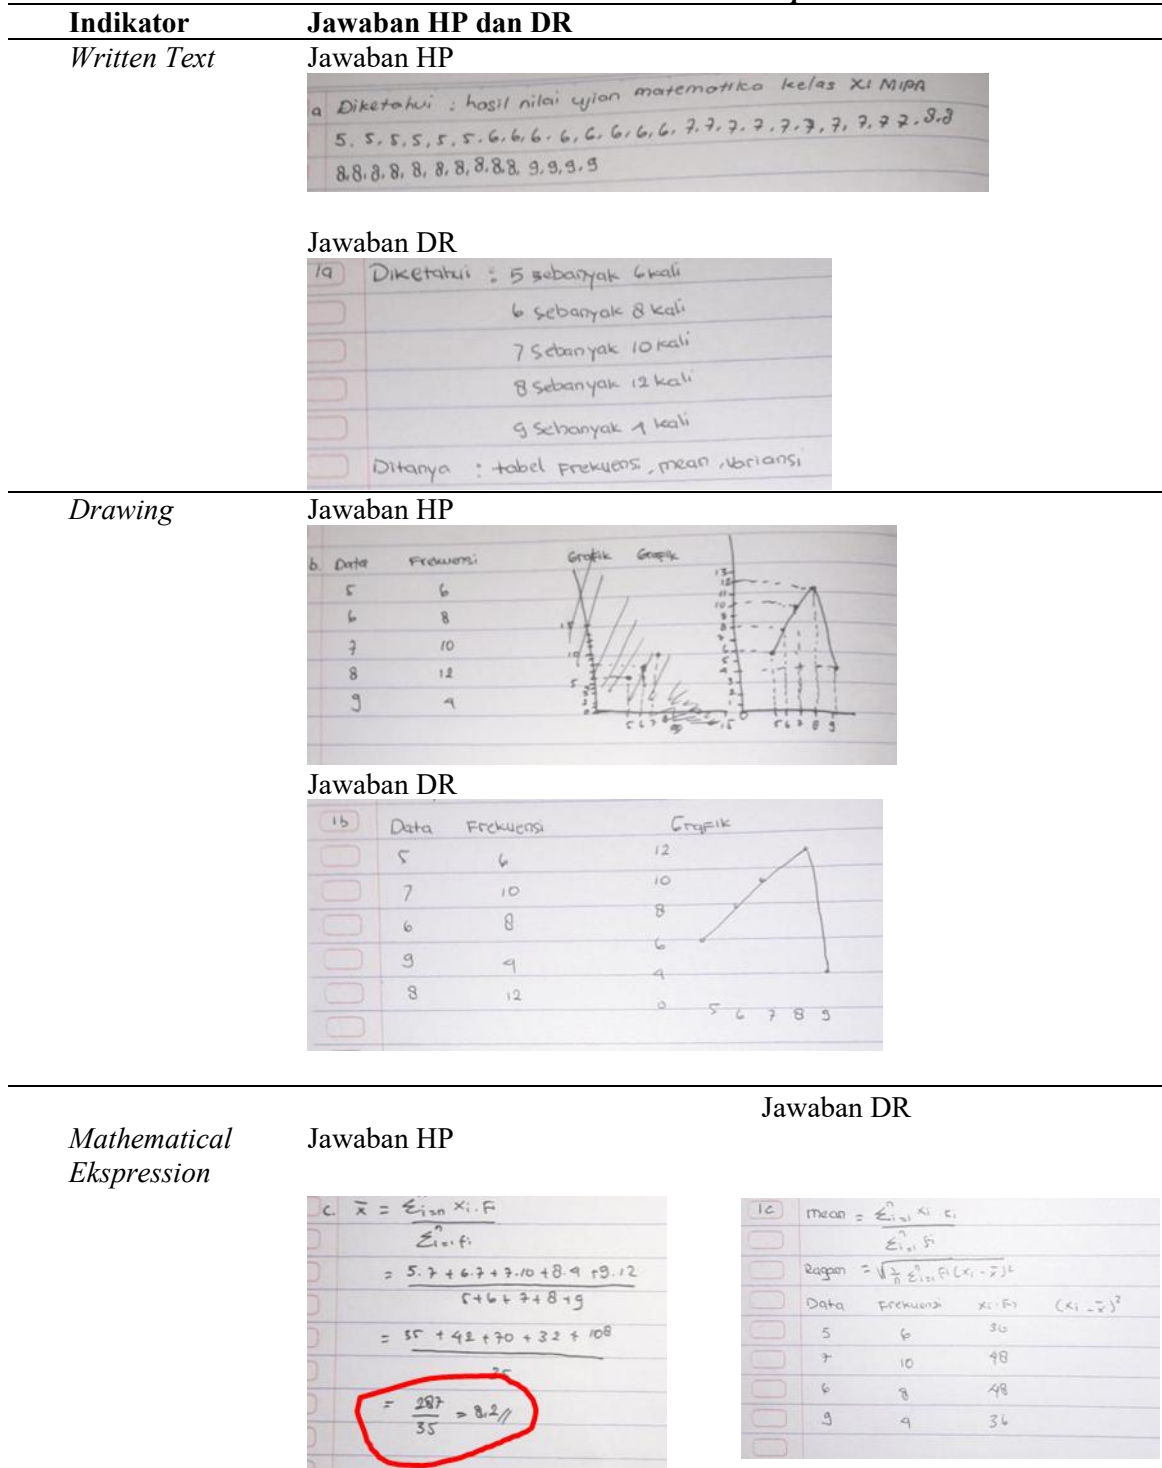 Indikator Jawaban HP dan DR
Written Text Jawaban HP
a Diketahui : hasil nilai ujian matematika kelas XI MIPA
5. 5, 5, 5, 5, 5. 6, 6, 6. 6, 6, 6, 6, 6, 7. 7. 7. 7. 7. 7, 7, 7, 7 7. 8.8
8.8.8.8, 8, 8, 8, 8.8.8, 9.9,9.9
Jawaban DR
1a Diketahui : 5 sebanyak 6 kali
6 sebanyak 8 kali
7 sebanyak 10 kali
8 sebanyak 12 kali
9 sebanyak 4 kali
Ditanya : tabel frekuensi, mean, variansi
Drawing Jawaban HP
b. Data Frekuensi Grafik Grafik
5 6
6 8
7 10
8 12
9 4
Jawaban DR
1b Data Frekuensi Grafik
5 6 12
7 10 10
6 8 8
9 4 6
8 12 4
0 5 6 7 8 9
Jawaban DR
Mathematical Jawaban HP
Ekspression
c. x̄ = Σi=n xi.F
Σⁿi=1 fi
= 5.7 + 6.7 + 7.10 + 8.4 + 9.12
5+6+7+8+9
= 35 + 42 + 70 + 32 + 108
35
= 287/35 = 8,2//
1c mean = Σⁿi=1 xi fi
Σⁿi=1 fi
Ragam = √1/n Σⁿi=1 Fi(xi - x̄)²
Data Frekuensi xi.Fi (xi - x̄)²
5 6 30
7 10 48
6 8 48
9 4 36